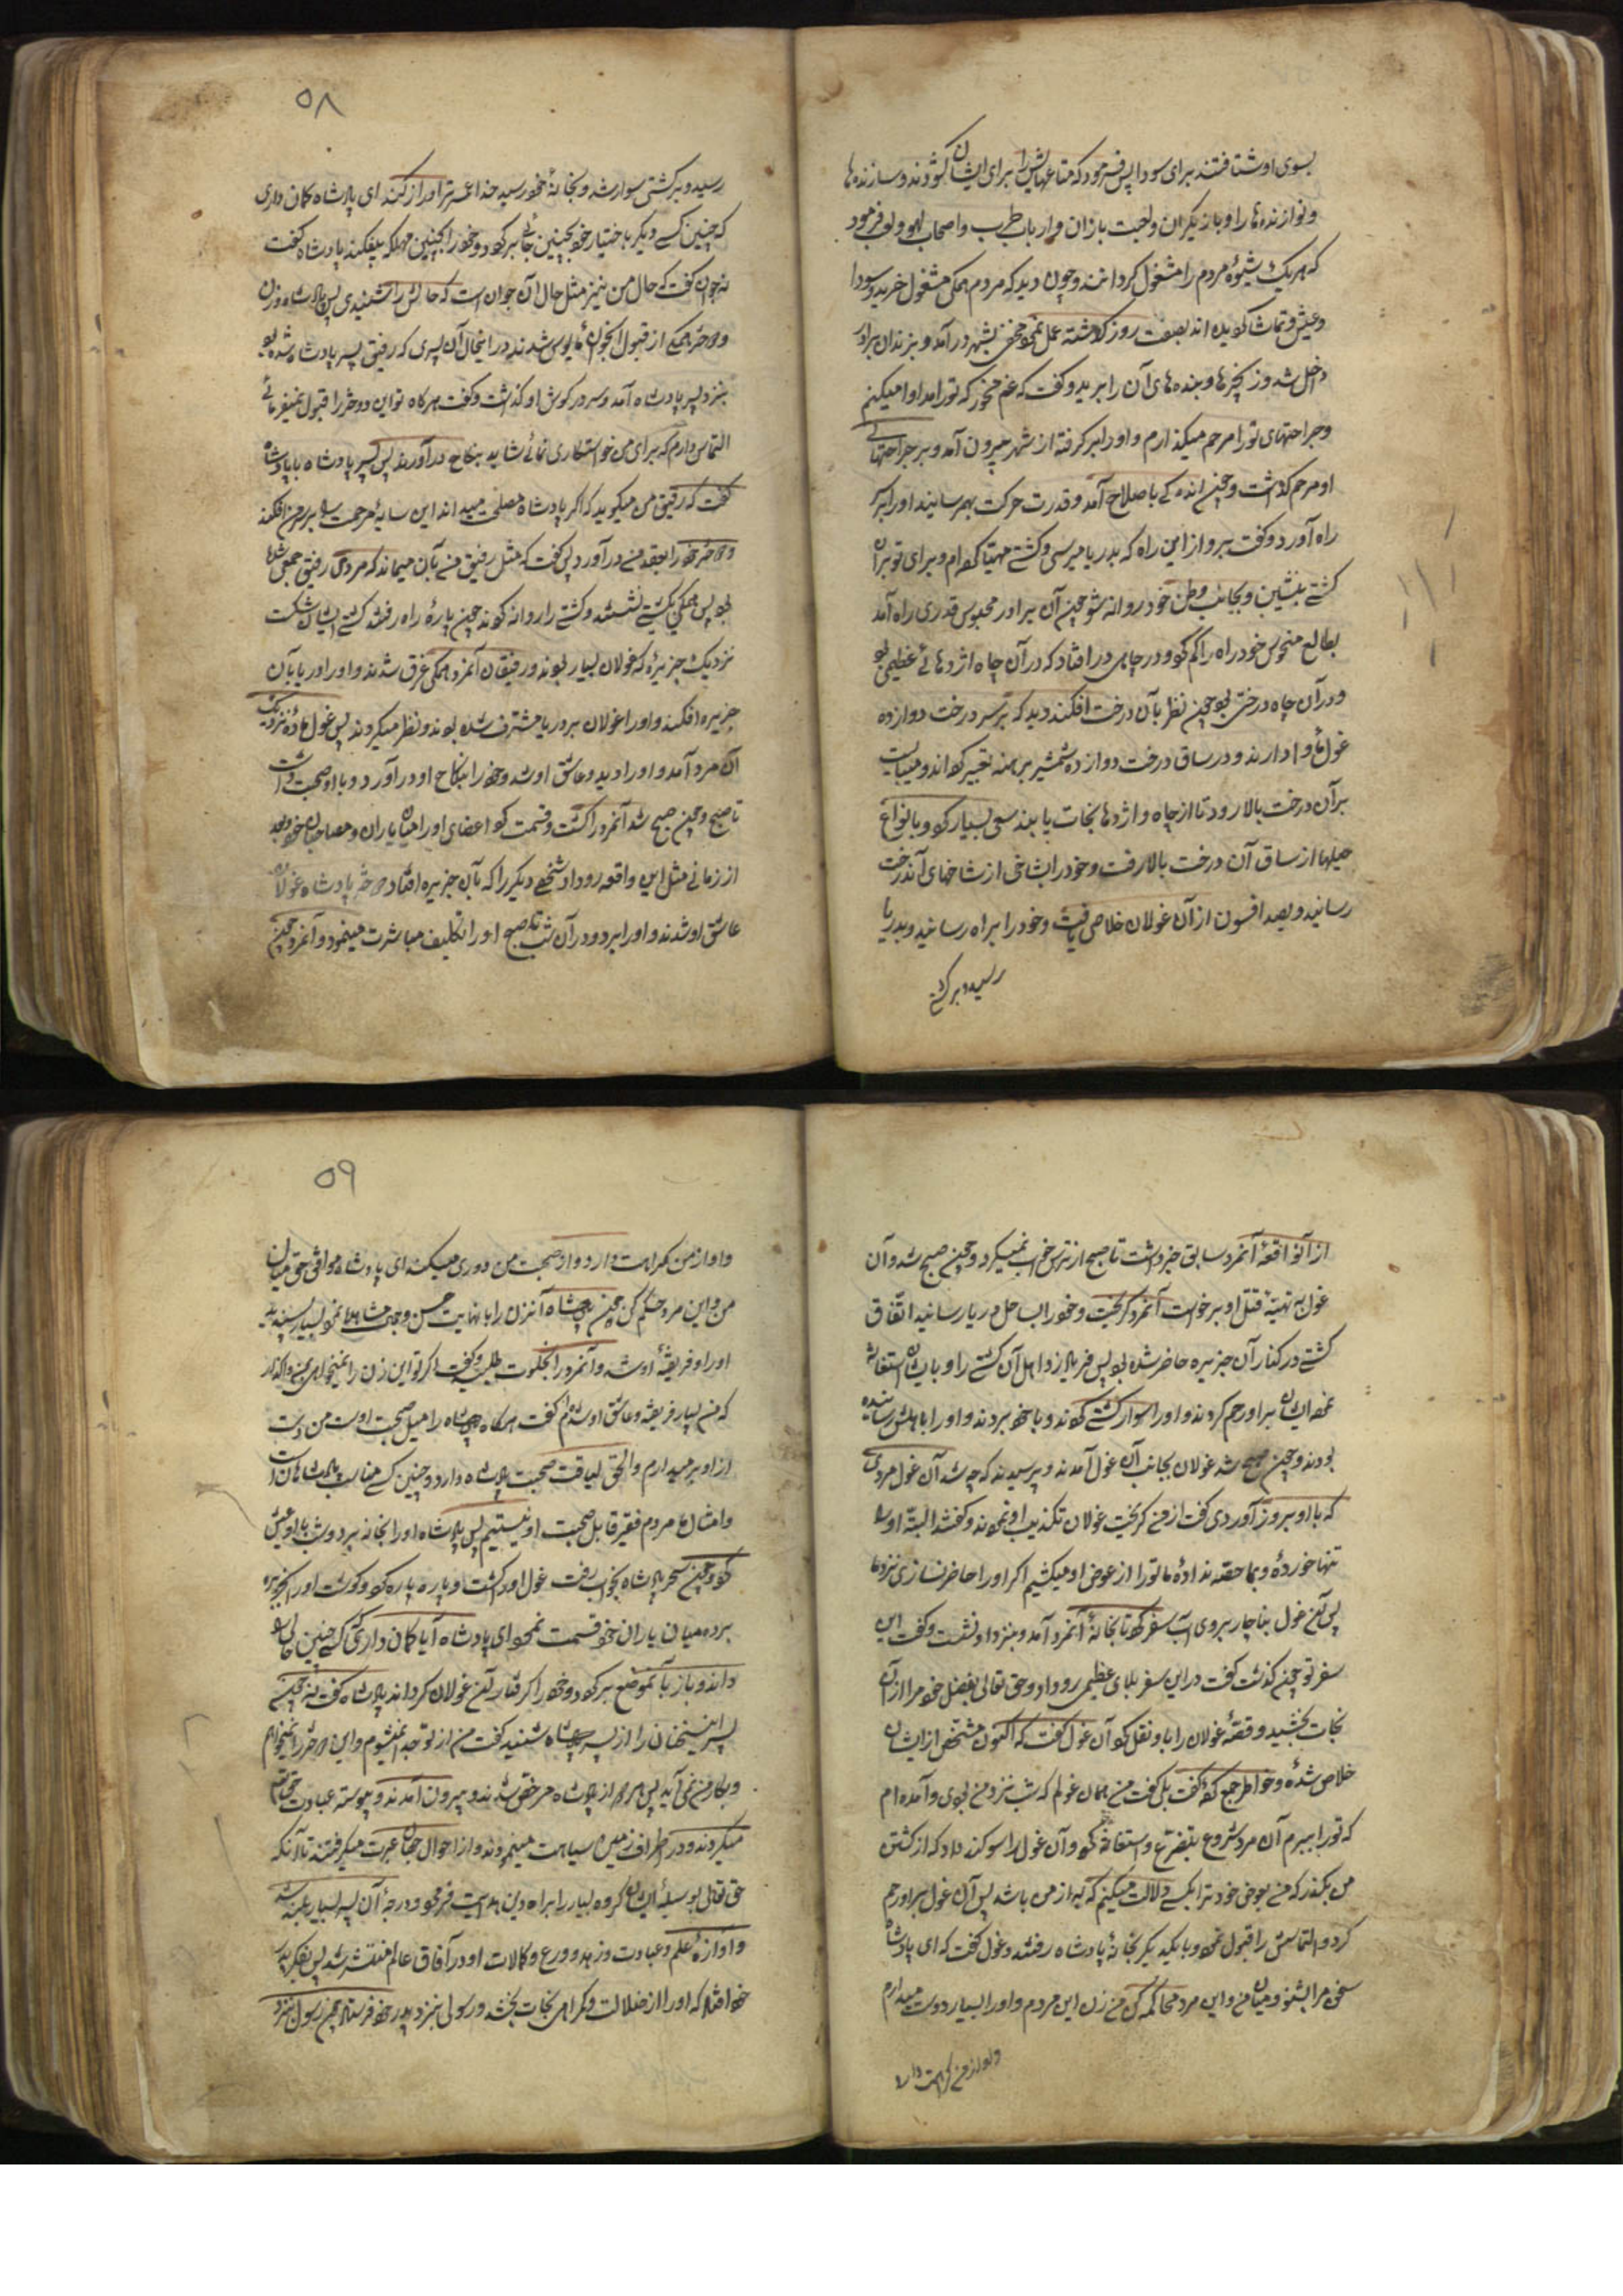 بسوی او شتافتند برای سودا پس فرمود که متاعهایش را برای ایشان گشودند و سازنده‌ها
و نوازنده‌ها را و بازیگران و لعبت بازان و ارباب طرب و اصحاب لهو و لعب فرمود
که هر یک بشیوهٔ مردم را مشغول گردانند و چون دید که مردم همکی مشغول خرید و سودا
و عیش و تماشا کردیده‌اند بصفت روز گذشته عمل نمود مخفی بشهر درآمد و بزندان برادر
داخل شد و زنجیرها و بنده‌های آن را برید و گفت که غم مخور که تو را مداوا میکنم
و جراحتهای تو را مرحم میگذارم و او را برگرفته از شهر بیرون آمد و بر جراحتهای
او مرحم گذاشت و چون اندکی باصلاح آمد و قدرت حرکت بهم رسانید او را بر سر
راه آورد و گفت برو از این راه که بدریا میرسی و کشتی مهیا کرده‌ام و برای تو بر آن
کشتی بنشین و بجانب وطن خود روانه شو چون آن برادر محبوس قدری راه آمد
بطالع منحوس خود راه را گم کرد و در چاهی در افتاد که در آن چاه اژدهائی عظیمی بود
و در آن چاه درختی بود چون نظر بآن درخت افکند دید که بر سر درخت دوازده
غول مأوا دارند و در ساق درخت دوازده شمشیر برهنه تعبیر کرده‌اند و میبایست
بر آن درخت بالا رود تا از چاه و اژدها نجات یابد سعی بسیار کرد و بانواع
حیلها از ساق آن درخت بالا رفت و خود را بشاخی از شاخهای آندرخت
رسانید و بصد افسون از آن غولان خلاصی یافت و خود را براه رسانید و بدریا
رسید و بر کشتی
۵۸
رسید و بر کشتی سوار شد و بخانهٔ خود رسید خدا عمرت را دراز کند ای پادشاه گمان داری
که چنین کسی دیگر باختیار خود بچنین جائی برگردد و خود را بچنین مهلکه بیفکند پادشاه گفت
نه جوان گفت که حال من نیز مثل حال آن جوان است که حالش را شنیدی پس پادشاه و زن
و دختر همکی از قبول آنجوان مأیوس شدند در اینحال آن پسری که رفیق پسر پادشاه شده بود
بنزد پسر پادشاه آمد و سر در گوش او گذاشت و گفت هرگاه تو این دختر را قبول نمیفرمائی
التماس دارم که برای من خواستگاری نمائی شاید بنکاح من درآورند پس پسر پادشاه با پادشاه
گفت که رفیق من میگوید که اگر پادشاه مصلحت میداند این سایهٔ مرحمت را بر سر من افکند
و دختر خود را بعقد من درآورد پس گفت که مثل رفیق من بآن میماند که مردی رفیق جمعی شد
بود پس همکی بکشتی نشستند و کشتی را روانه کردند چون پارهٔ راه رفتند کشتی ایشان شکست
نزدیک جزیرهٔ که غولان بسیار بودند و رفیقان آنمرد همکی غرق شدند و او را دریا بآن
جزیره افکند و او را غولان بر دریا مشرف شده بودند و نظر میکردند پس غول ماده نزدیک
آن مرد آمد و او را دید و عاشق او شد و خود را بنکاح او درآورد و با او صحبت داشت
تا صبح و چون صبح شد آنمرد را کشت و قسمت کرد اعضای او را میان یاران و مصاحبان خود و بعد
از زمانی مثل این واقعه رو داد شخصی دیگر را که بآن جزیره افتاد دختر پادشاه غولان
عاشق او شدند و او را برد و در آن شب تا صبح او را تکلیف مباشرت مینمود و آنمرد چون
از آنواقعهٔ آنمرد سابق خبر داشت تا صبح از ترس خواب نمیکرد و چون صبح شد و آن
غول به تهیهٔ قتل او برخواست آنمرد گریخت و خود را بساحل دریا رسانید اتفاق
کشتی در کنار آن جزیره حاضر شده بود پس فریاد زد اهل آن کشتی را و بایشان استغاثه
نمود ایشان بر او رحم کردند و او را سوار کشتی کردند و با خود بردند و او را باهلش رسانیده
بودند و چون صبح شد غولان بجانب آن غول آمدند و پرسیدند که چه شد آن غول مردی
که با او بروز آوردی گفت از من گریخت غولان تکذیب او نمودند و گفتند البته او را
تنها خوردهٔ و بما حصه نداده‌ٔ ما تو را از عوض او میکشیم اگر او را حاضر نسازی نزد ما
پس آن غول بناچار بروی آب سفر کرد تا بخانهٔ آنمرد آمد و بنزد او نشست و گفت این
سفر تو چون گذشت گفت در این سفر بلای عظیمی رو داد و حق تعالی بفضل خود مرا از آن
نجات بخشید و قصهٔ غولان را باو نقل کرد آن غول گفت که اکنون مشخص از ایشان
خلاص شدهٔ و خاطر جمع کردهٔ گفت بلی گفت من همان غولم که شب نزد من بودی و آمده‌ام
که تو را ببرم آن مرد شروع بتضرع و استغاثه کرد و آن غول را سوگند داد که از کشتن
من بگذر که من بعوض خود ترا بکسی دلالت میکنم که به از من باشد پس آن غول بر او رحم
کرد و التماسش را قبول نمود و با یکدیگر بخانهٔ پادشاه رفتند و غول گفت که ای پادشاه
سخن مرا بشنو و میان من و این مرد محاکمه کن من زن این مردم و او را بسیار دوست میدارم
و او از من کراهت دارد
۵۹
و او از من کراهت دارد و از صحبت من دوری میکند ای پادشاه موافق حق میان
من و این مرد حکم کن چون پادشاه آنزن را با نهایت حسن و جمال مشاهده نمود بسیار پسندید
او را و فریفتهٔ او شد و آنمرد را بخلوت طلبید و گفت اگر تو این زن را نمیخواهی بمن واگذار
که من بسیار فریفته و عاشق او شده‌ام گفت هرگاه پادشاه را میل صحبت اوست من دست
از او برمیدارم و الحق لیاقت صحبت پادشاه دارد و چنین کسی مناسب پادشاهان است
و امثال ما مردم فقیر قابل صحبت او نیستیم پس پادشاه او را بخانه برد و شب با او عیش
کرد و چون سحر پادشاه بخواب رفت غول او را کشت و پاره پاره کرد و گوشت او را بجزیره
برده میان یاران خود قسمت نمود ای پادشاه آیا گمان داری که کسی چنین حالی را
داند و باز بآنموضع برگردد و خود را گرفتار آن غولان گرداند پادشاه گفت نه چون
پسر اینسخنان را از پسر پادشاه شنید گفت من از تو جدا نمیشوم و این دختر را نمیخواهم
و بکار من نمی‌آید پس هر دو از پادشاه مرخص شدند و بیرون آمدند و پیوسته عبادت حق تعالی
میکردند و در اطراف زمین سیاحت مینمودند و از احوال جهان عبرت میگرفتند تا آنکه
حق تعالی بوسیلهٔ ایشان گروه بسیار را براه دین هدایت فرمود و درجهٔ آن پسر بسیار بلند شد
و آوازهٔ علم و عبادت و زهد و ورع و کمالات او در آفاق عالم منتشر شد پس بفکر پدر
خود افتاد که او را از ضلالت و گمراهی نجات بخشد و رسولی بنزد پدر خود فرستاد چون رسول بنزد